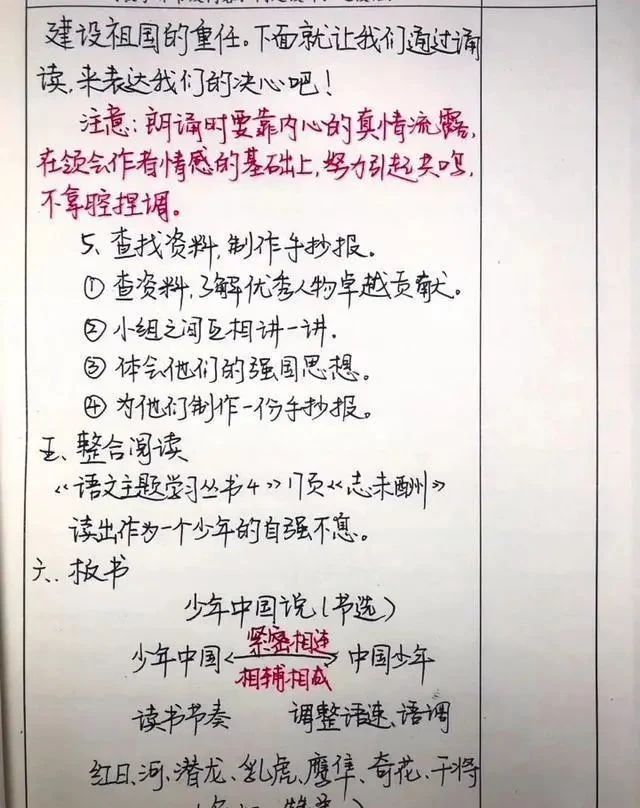 建设祖国的重任。下面就让我们通过诵
读,来表达我们的决心吧!
注意:朗诵时要靠内心的真情流露,
在领会作者情感的基础上,努力引起共鸣,
不拿腔捏调。
5、查找资料,制作手抄报。
①查资料,了解优秀人物卓越贡献。
②小组之间互相讲一讲.
③体会他们的强国思想。
④为他们制作一份手抄报。
五、整合阅读
《语文主题学习丛书4》17页《志未酬》
读出作为一个少年的自强不息。
六、板书
少年中国说(节选)
紧密相连
少年中国 中国少年
相辅相成
读书节奏 调整语速、语调
红日、河、潜龙、乳虎、鹰隼、奇花、干将